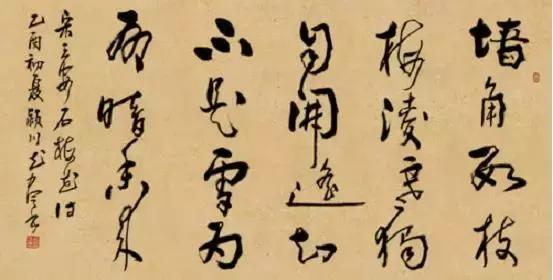 墙角数枝
梅凌寒独
自開遥知
不是雪为
有暗香来
宋王安石梅花诗
乙酉初夏颍川